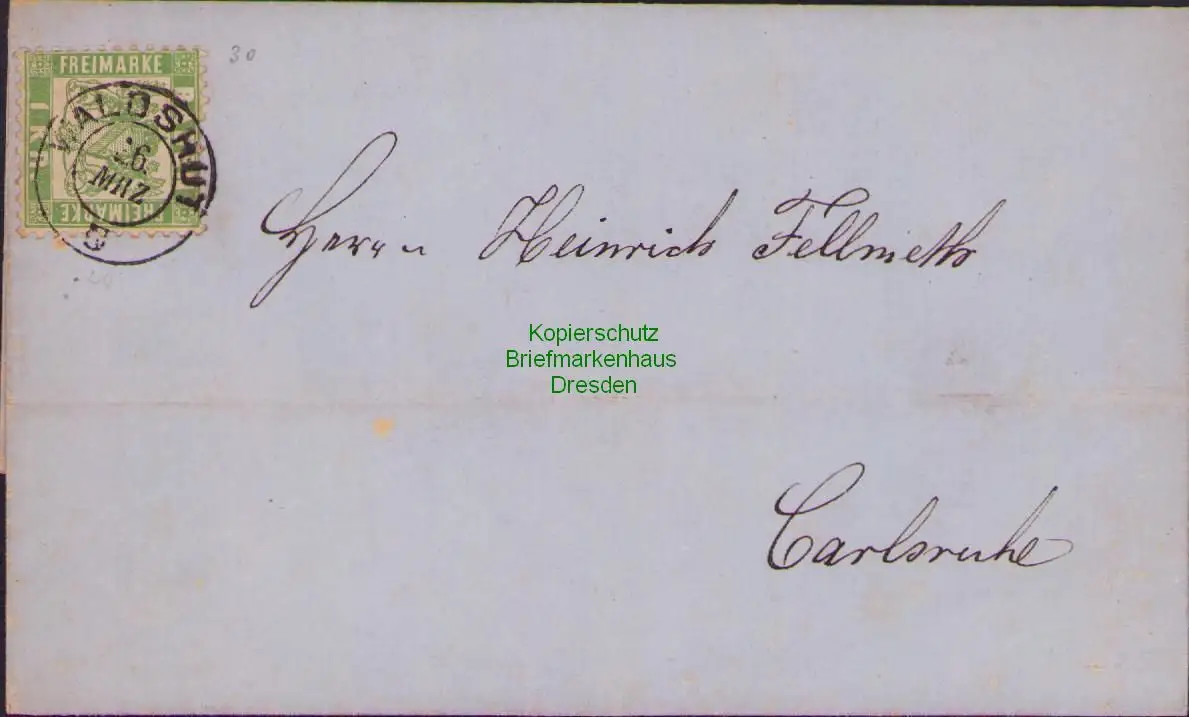 30
FREIMARKE
WALDSHUT
26.
MRZ
FREIMARKE
Herrn Heinrich Fellmeth
Kopierschutz
Briefmarkenhaus
Dresden
Carlsruhe